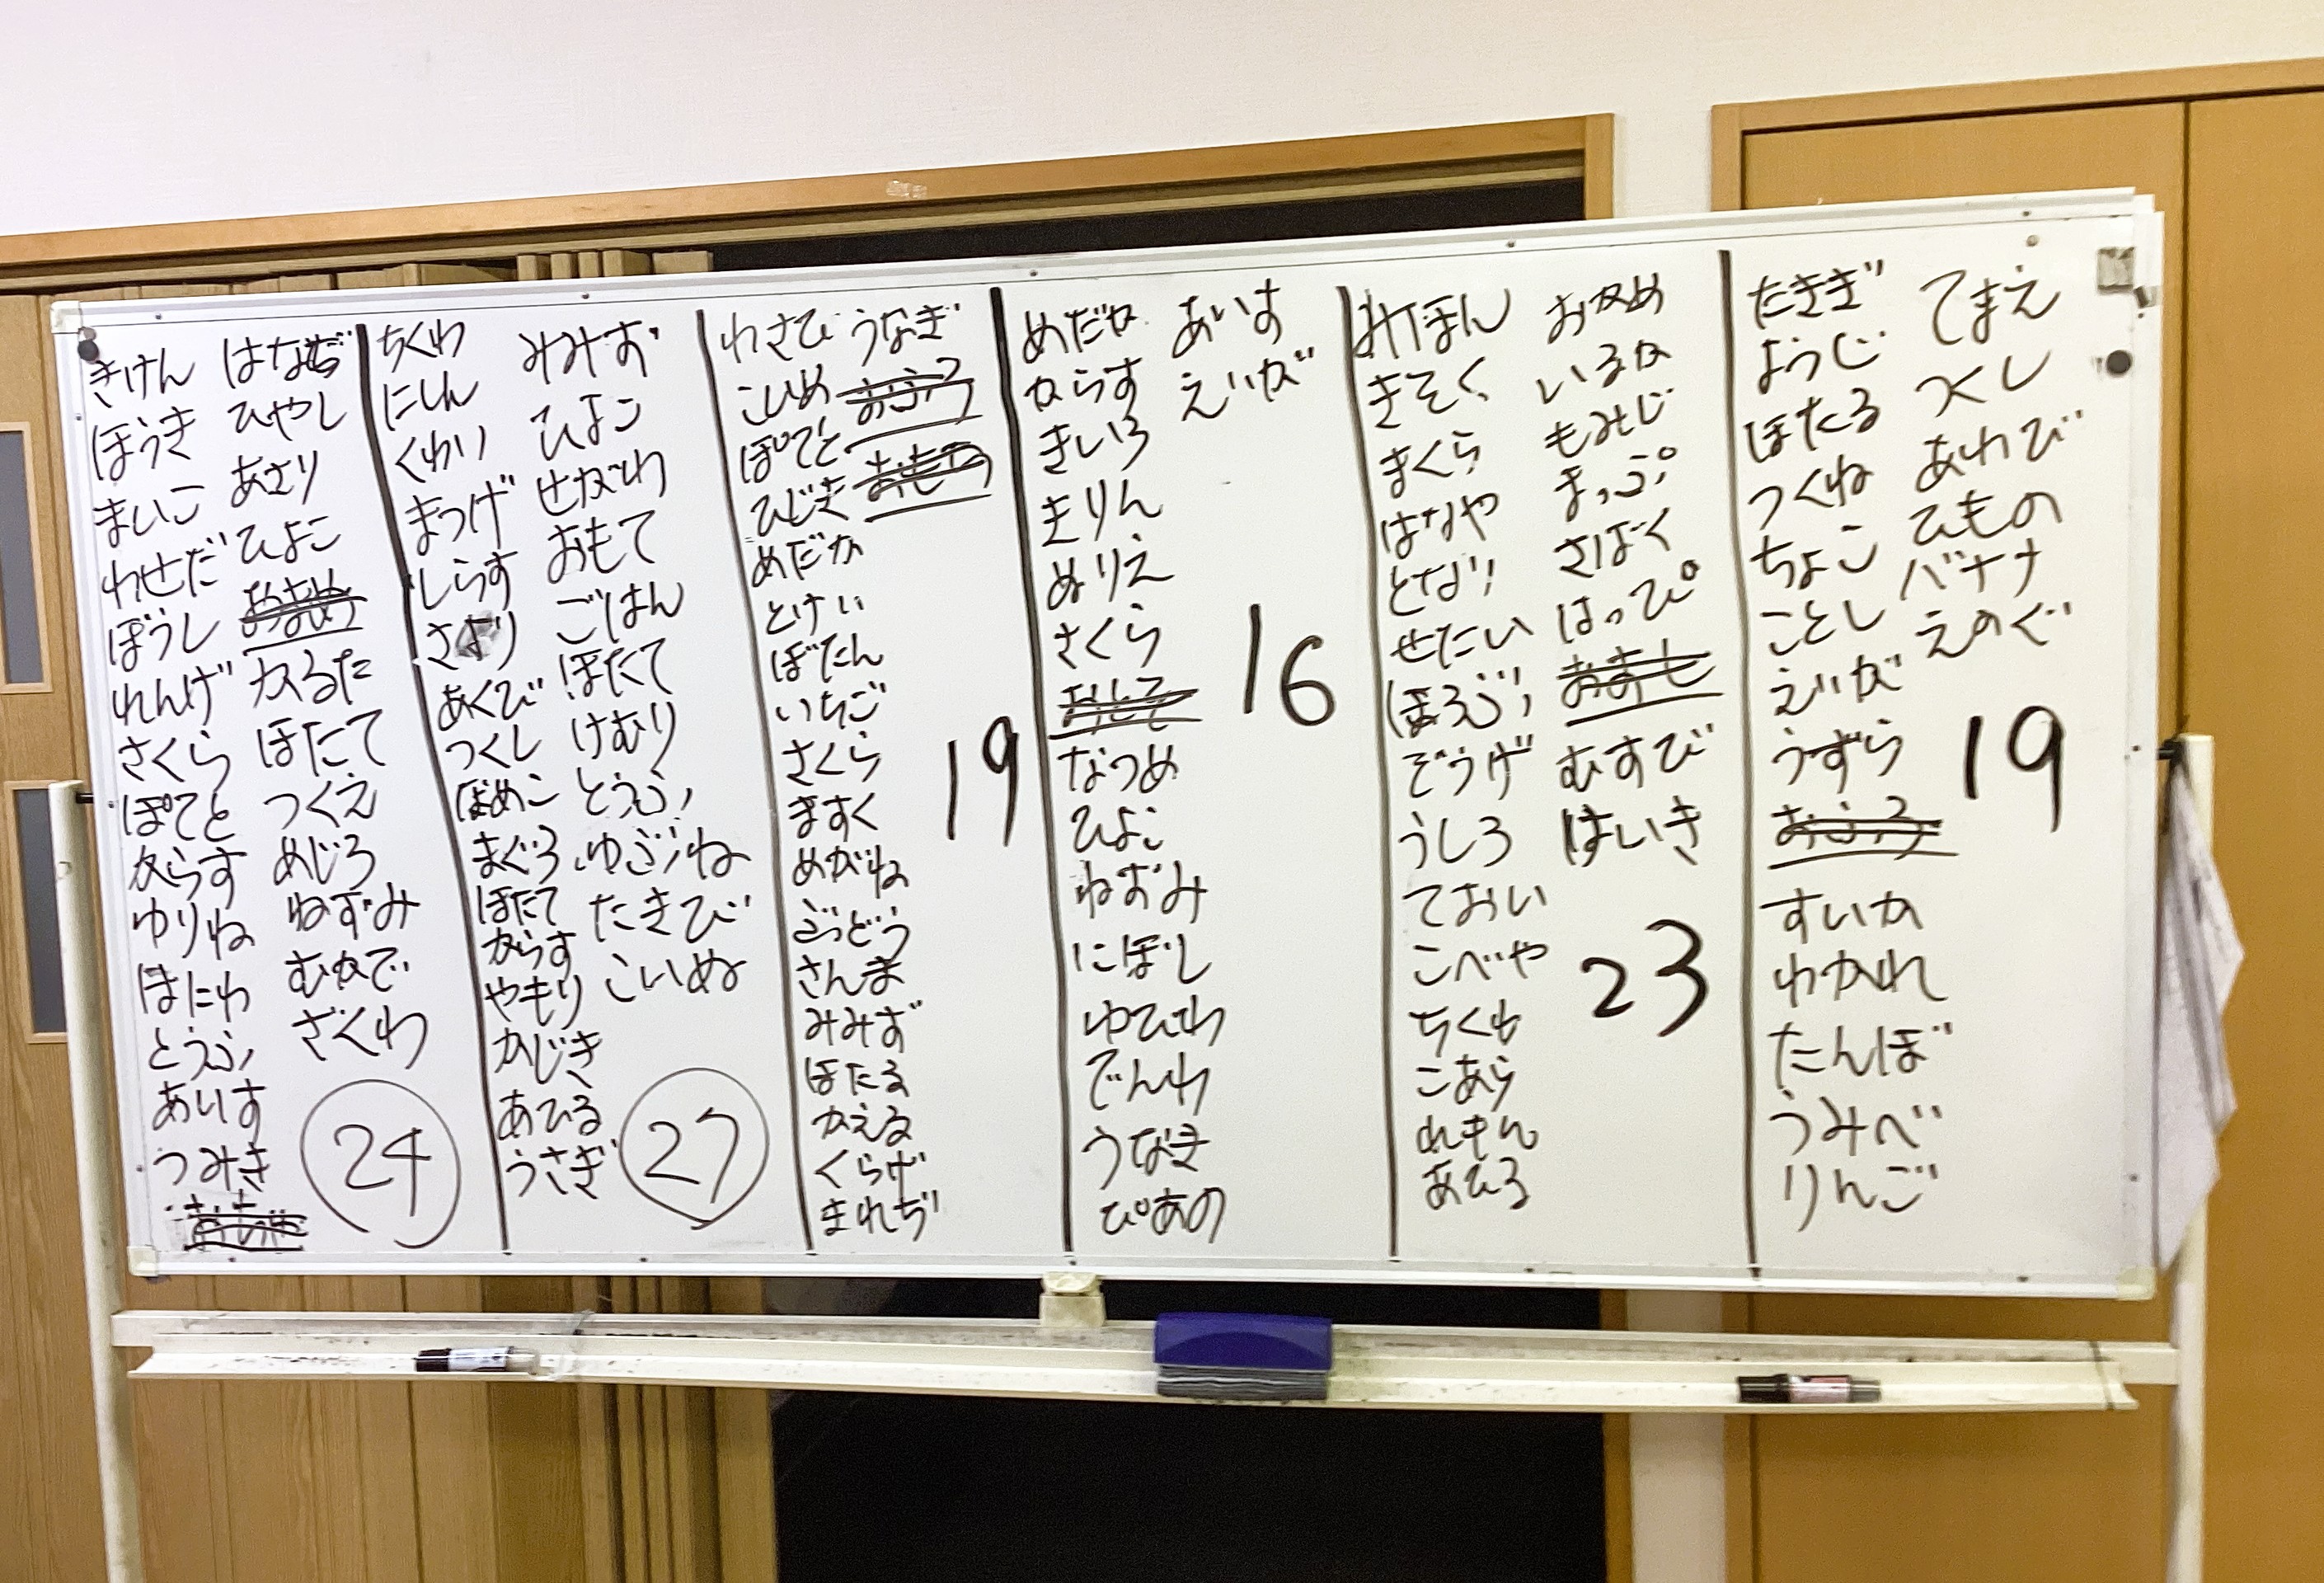 きけん
ほうき
まいこ
わせだ
ぼうし
れんげ
さくら
ぽてと
からす
ゆりね
はにわ
とうふ
あいす
つみき
はなぢ
ひやし
あさり
ひよこ
かるた
ほたて
つくえ
めじろ
ねずみ
むかで
ざくわ
24
ちくわ
にしん
くわり
まつげ
しらす
さより
あくび
つくし
まぐろ
ほたて
からす
やもり
かじき
あひる
うさぎ
みみず
ひよこ
せなわ
おもて
ごはん
ほたて
けむり
とうふ
ゆぶね
たきび
こいぬ
27
わさび
こいめ
ぽてと
ひじき
めだか
とけい
ぼたん
いちご
さくら
ますく
めがね
ぶどう
さんま
みみず
ほたる
かえる
くらげ
まれぢ
うなぎ
おふろ
19
めだか
からす
きいろ
きりん
ぬりえ
さくら
なつめ
ひよこ
ねずみ
にぼし
ゆびわ
でんわ
うなぎ
ぴあの
あいす
えいが
16
みほん
きそく
まくら
はなや
となり
せたい
ぼろぶり
ぞうげ
うしろ
ておい
こべや
ちくわ
こあら
れもん
あひる
おかめ
いるか
もみじ
まっぷ
さばく
はっぴ
むすび
はいき
23
たきぎ
ようじ
ほたる
つくね
ちょこ
ことし
えいが
うずら
おふろ
すいか
わかれ
たんぼ
うみべ
りんご
てまえ
つくし
あわび
ひもの
バナナ
えのぐ
19